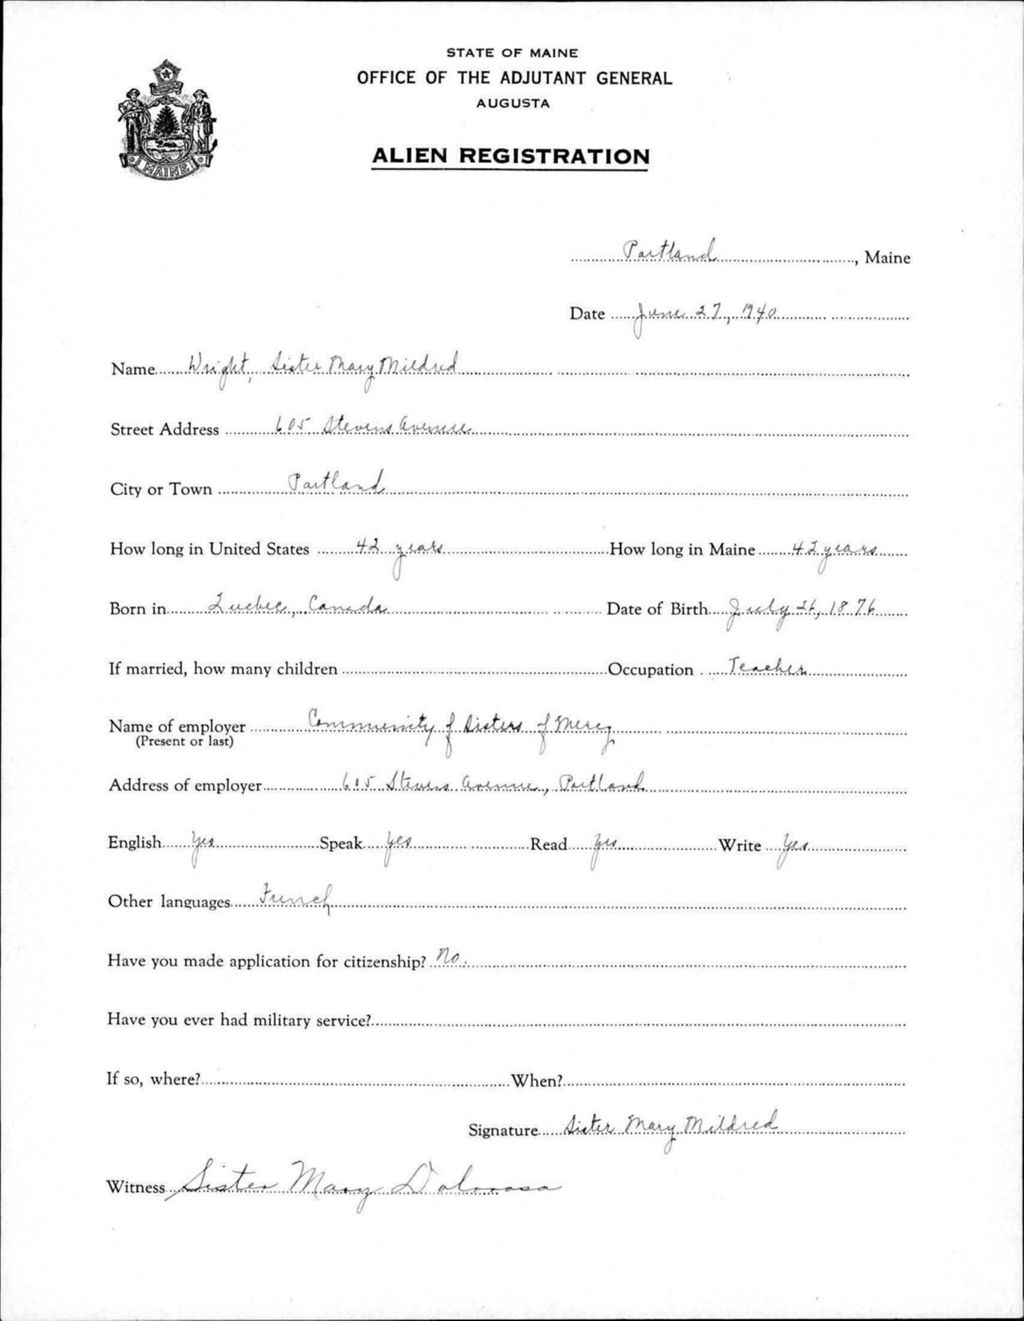 STATE OF MAINE
OFFICE OF THE ADJUTANT GENERAL
AUGUSTA
ALIEN REGISTRATION
MAINE
Portland, Maine
Date June 27, 1940
Name Wright, Sister Mary Mildred
Street Address 605 Stevens Avenue
City or Town Portland
How long in United States 42 years How long in Maine 42 years
Born in Quebec, Canada Date of Birth July 26, 1876
If married, how many children Occupation Teacher
Name of employer Community of Sisters of Mercy
(Present or last)
Address of employer 605 Stevens Avenue, Portland
English Yes Speak Yes Read Yes Write Yes
Other languages French
Have you made application for citizenship? No.
Have you ever had military service?
If so, where? When?
Signature Sister Mary Mildred
Witness Sister Mary Dolorosa